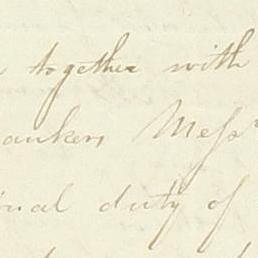 together with
ankers Messrs
onal duty of